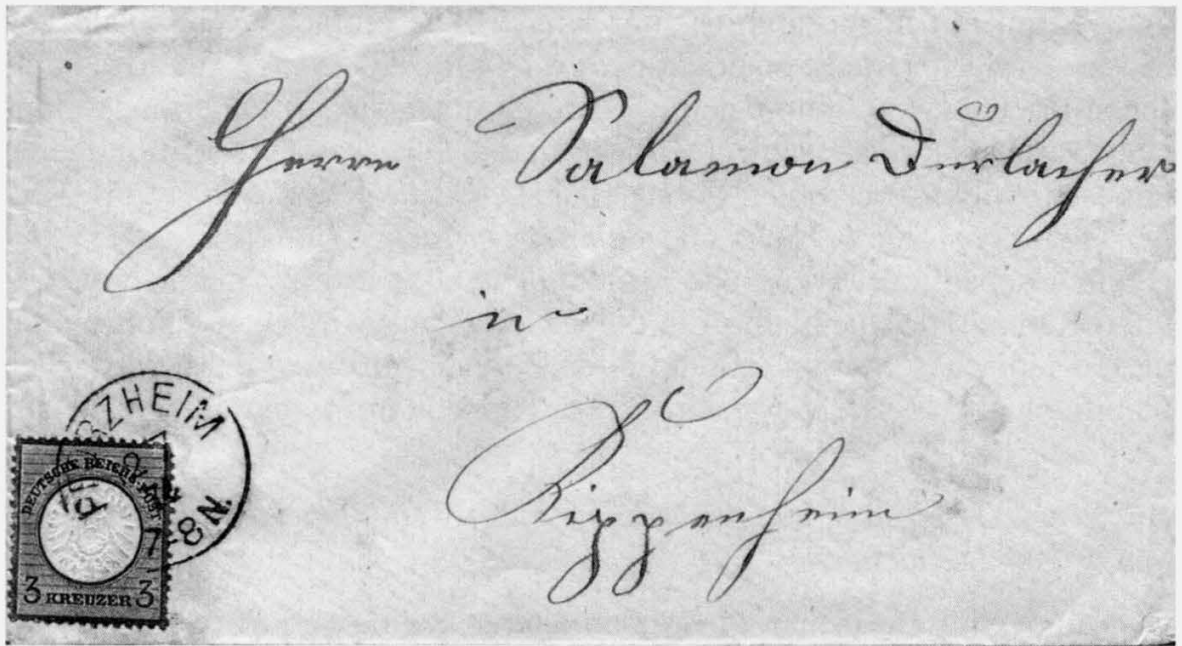 Herrn Salamon Durlacher
in
Kippenheim
PFORZHEIM
7-8N.
DEUTSCHE REICHS-POST
3 KREUZER 3